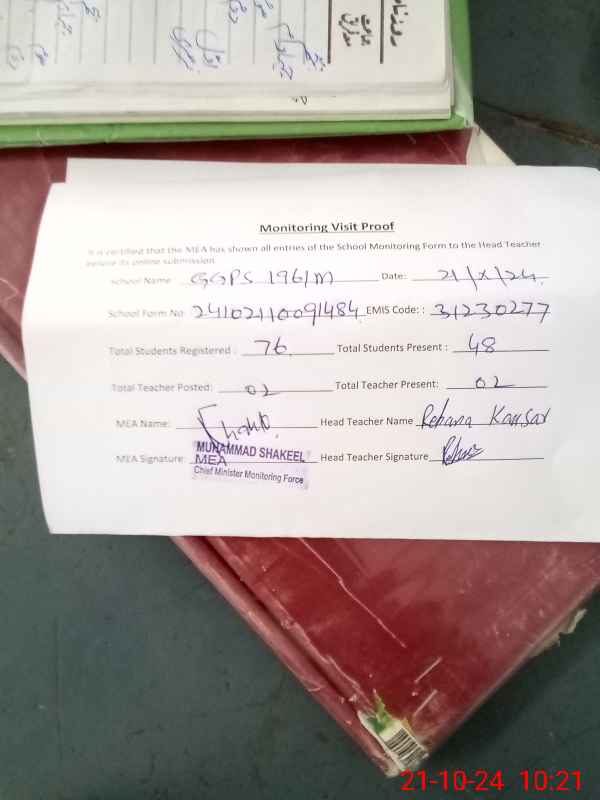 روزنامہ
Monitoring Visit Proof
It is certified that the MEA has shown all entries of the School Monitoring Form to the Head Teacher
before its online submission.
School Name: GGPS 196/M Date: 21/X/24.
School Form No: 24102110091484 EMIS Code: : 31230277
Total Students Registered : 76 Total Students Present : 48
Total Teacher Posted: 02 Total Teacher Present: 02
MEA Name: Head Teacher Name Rehana Kausar
MEA Signature: MUHAMMAD SHAKEEL Head Teacher Signature
MEA
Chief Minister Monitoring Force
21-10-24 10:21